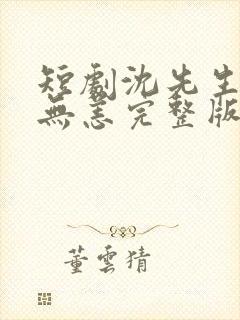 短劇沈先生
無恙完整版
董雲猜